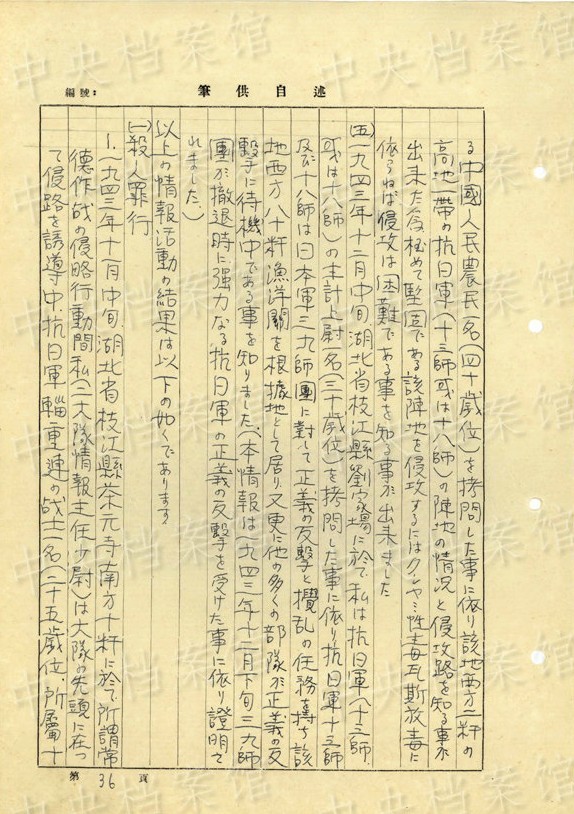 中央档案馆
編號：
筆供自述
る中國人民農民一名(四十歲位)を拷問した事に依り該地西方一粁の
高地一帶の抗日軍(十三師或は十八師)の陣地の情況と侵攻路を知る事が
出来た為極めて堅固である該陣地を侵攻するにはクシャミ性毒瓦斯放毒に
依らねば侵攻は困難である事を知る事が出来ました
(五)一九四三年十二月中旬湖北省枝江縣劉家場に於て私は抗日軍八十三師
或は十八師)の主計上尉一名(三十歲位)を拷問した事に依り抗日軍十三師
及び十八師は日本軍三九師團に對して正義の反擊と攪乱の任務を持ち該
地西方八十粁漁洋關を根據地として居り、又更に他の多くの部隊が正義の反
擊手に待機中である事を知りました、(本情報は一九四三年十二月下旬三九師
團が撤退時に强力なる抗日軍の正義の反擊を受けた事に依り證明さ
れました、)
以上の情報活動の結果は以下の如くであります
(一)殺人罪行
1.一九四三年十一月中旬、湖北省枝江縣茶元寺南方十粁に於て所謂常
德作战の侵略行動間私(二大隊情報主任少尉)は大隊の先頭に在っ
て侵路を誘導中、抗日軍輜重連の战士一名(二十五歲位、所屬十
第36頁